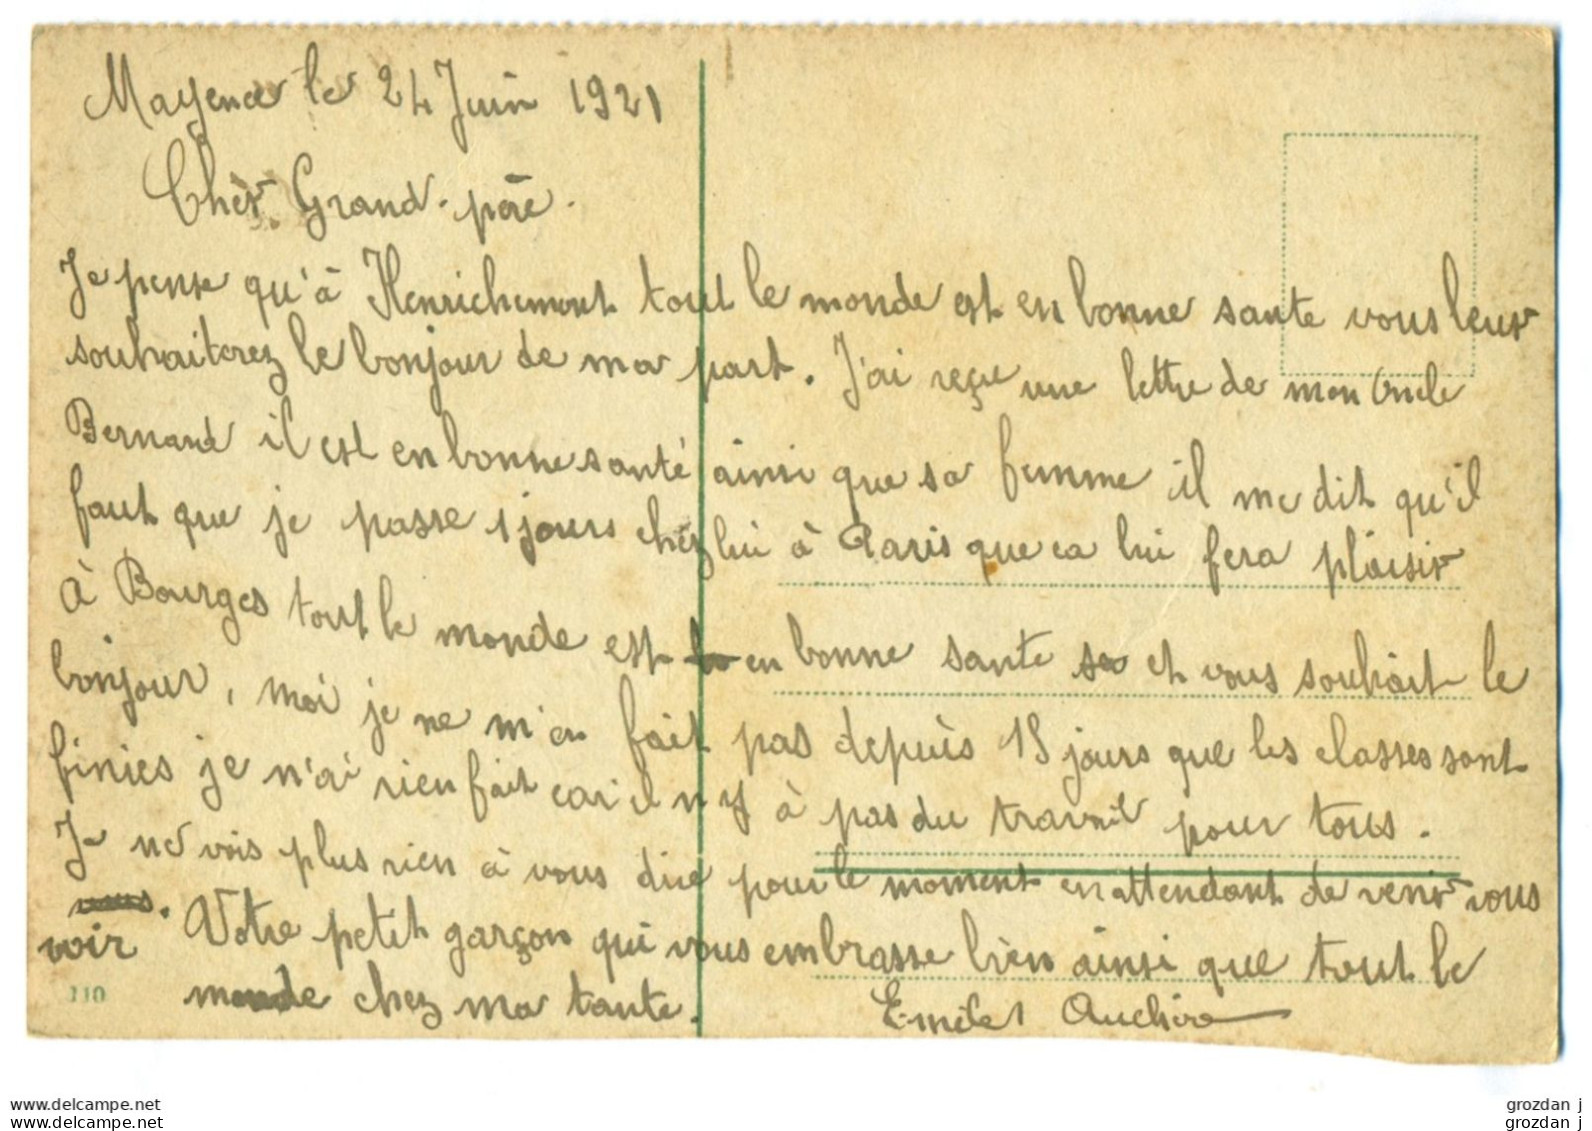 Mayence le 24 Juin 1921
Chèr Grand-père.
Je pense qu'à Henrichemont tout le monde est en bonne sante vous leur
souhaiterez le bonjour de ma part. J'ai reçue une lettre de mon Oncle
Bernard il est en bonne santé ainsi que sa femme il me dit qu'il
faut que je passe 1 jours chez lui à Paris que ca lui fera plaisir
à Bourges tout le monde est en bonne sante et vous souhait le
bonjour, moi je ne m'en fait pas depuis 15 jours que les classes sont
finies je n'ai rien fait car il n'y à pas du travail pour tous.
Je ne vois plus rien à vous dire pour le moment en attendant de venir vous
voir. Votre petit garçon qui vous embrasse bien ainsi que tout le
monde chez ma tante. Emile
110
www.delcampe.net grozdan j
www.delcampe.net grozdan j